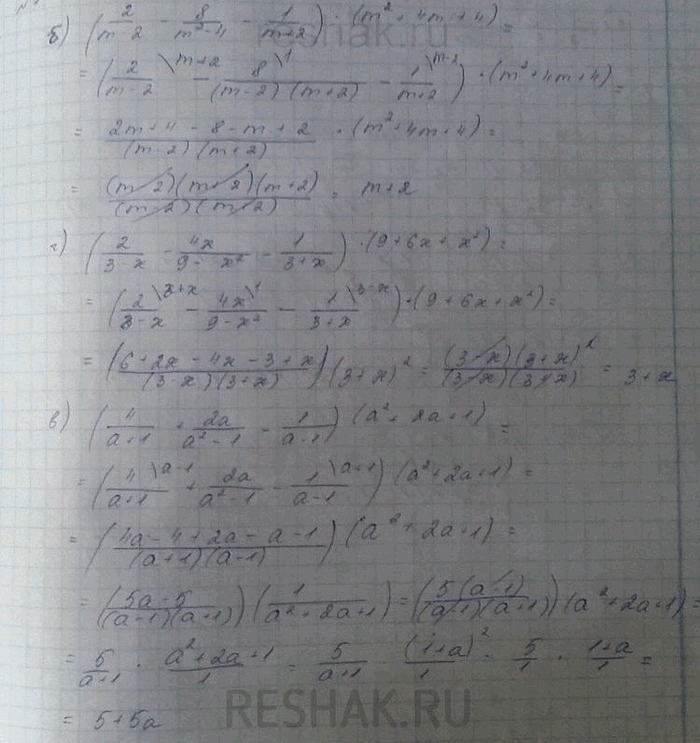 reshak.ru
б) (2/(m-2) - 8/(m²-4) - 1/(m+2)) · (m²+4m+4) =
= (2/(m-2) \m+2 - 8/((m-2)(m+2)) \1 - 1/(m+2) \m-2) · (m²+4m+4) =
= (2m+4-8-m+2)/((m-2)(m+2)) · (m²+4m+4) =
= ((m-2)(m+2)(m+2))/((m-2)(m+2)) = m+2
г) (2/(3-x) - 4x/(9-x²) - 1/(3+x)) · (9+6x+x²) =
= (2/(3-x) \3+x - 4x/(9-x²) \1 - 1/(3+x) \3-x) · (9+6x+x²) =
= ((6+2x-4x-3+x)/((3-x)(3+x))) (3+x)² = ((3-x)(3+x)²)/((3-x)(3+x)) = 3+x
в) (4/(a+1) + 2a/(a²-1) - 1/(a-1)) (a²+2a+1) =
= (4/(a+1) \a-1 + 2a/(a²-1) - 1/(a-1) \a+1) (a²+2a+1) =
= ((4a-4+2a-a-1)/((a+1)(a-1))) (a²+2a+1) =
= ((5a-5)/((a-1)(a+1))) (1/(a²+2a+1)) = (5(a-1)/((a-1)(a+1))) (a²+2a+1) =
= 5/(a+1) · (a²+2a+1)/1 = 5/(a+1) · (1+a)²/1 = 5/1 · (1+a)/1 =
= 5+5a
RESHAK.RU